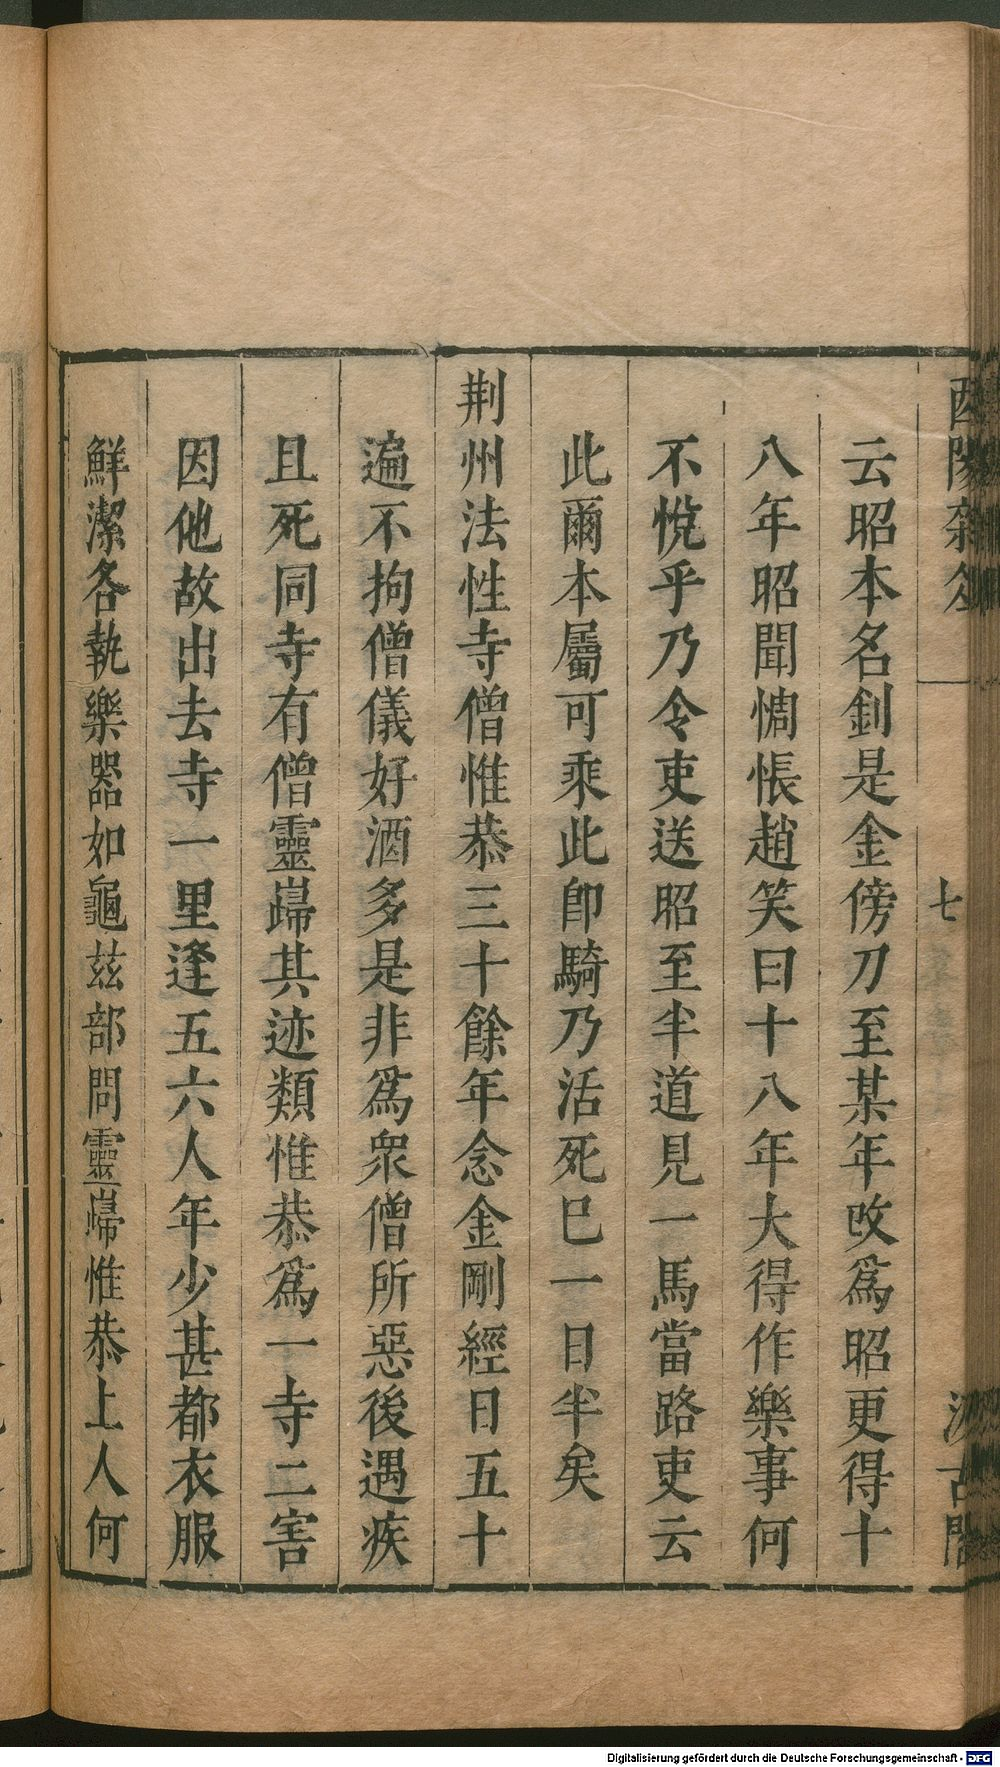 酉陽雜俎
七
汲古閣
云昭本名釗是金傍刀至某年改爲昭更得十
八年昭聞惆悵趙笑曰十八年大得作樂事何
不悅乎乃令吏送昭至半道見一馬當路吏云
此爾本屬可乘此卽騎乃活死巳一日半矣
荆州法性寺僧惟恭三十餘年念金剛經日五十
遍不拘僧儀好酒多是非爲衆僧所惡後遇疾
且死同寺有僧靈巋其迹類惟恭爲一寺二害
因他故出去寺一里逢五六人年少甚都衣服
鮮潔各執樂器如龜茲部問靈巋惟恭上人何
Digitalisierung gefördert durch die Deutsche Forschungsgemeinschaft - DFG